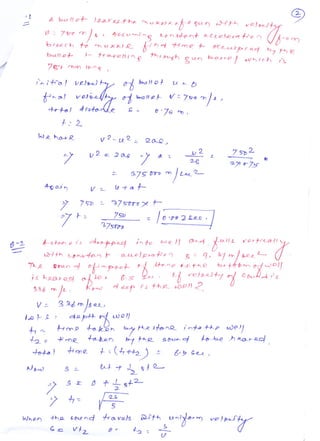 ②
Q-1 A bullet leaves the muzzle of a gun with velocity
v = 750 m/s. Assuming constant acceleration from
breech to muzzle find time t occupied by the
bullet in travelling through gun barrel which is
750 mm long.
initial velocity of bullet u = 0
final velocity of bullet v = 750 m/s.
total distance s = 0.75 m.
t = ?
We have v² - u² = 2as,
=> v² = 2as => a = v²/2s = 750²/2×0.75
= 375000 m/sec²
Again v = u + at
=> 750 = 375000 × t
=> t = 750/375000 = 0.002 sec.
Q-2 A stone is dropped into well and falls vertically
with constant acceleration g = 9.81 m/sec²
The sound of impact of stone bottom of well
is heared after 6.5 sec. If velocity of sound is
336 m/s. How deep is the well?
V = 336 m/sec.
let s = depth of well
t₁ = time taken by the stone into the well
t₂ = time taken by the sound to be heared.
total time t = (t₁+t₂) = 6.5 sec.
Now s = ut + ½ gt²
=> s = 0 + ½ gt²
=> t₁ = √2s/g
When the sound travels with uniform velocity
s = vt₂ or t₂ = s/v